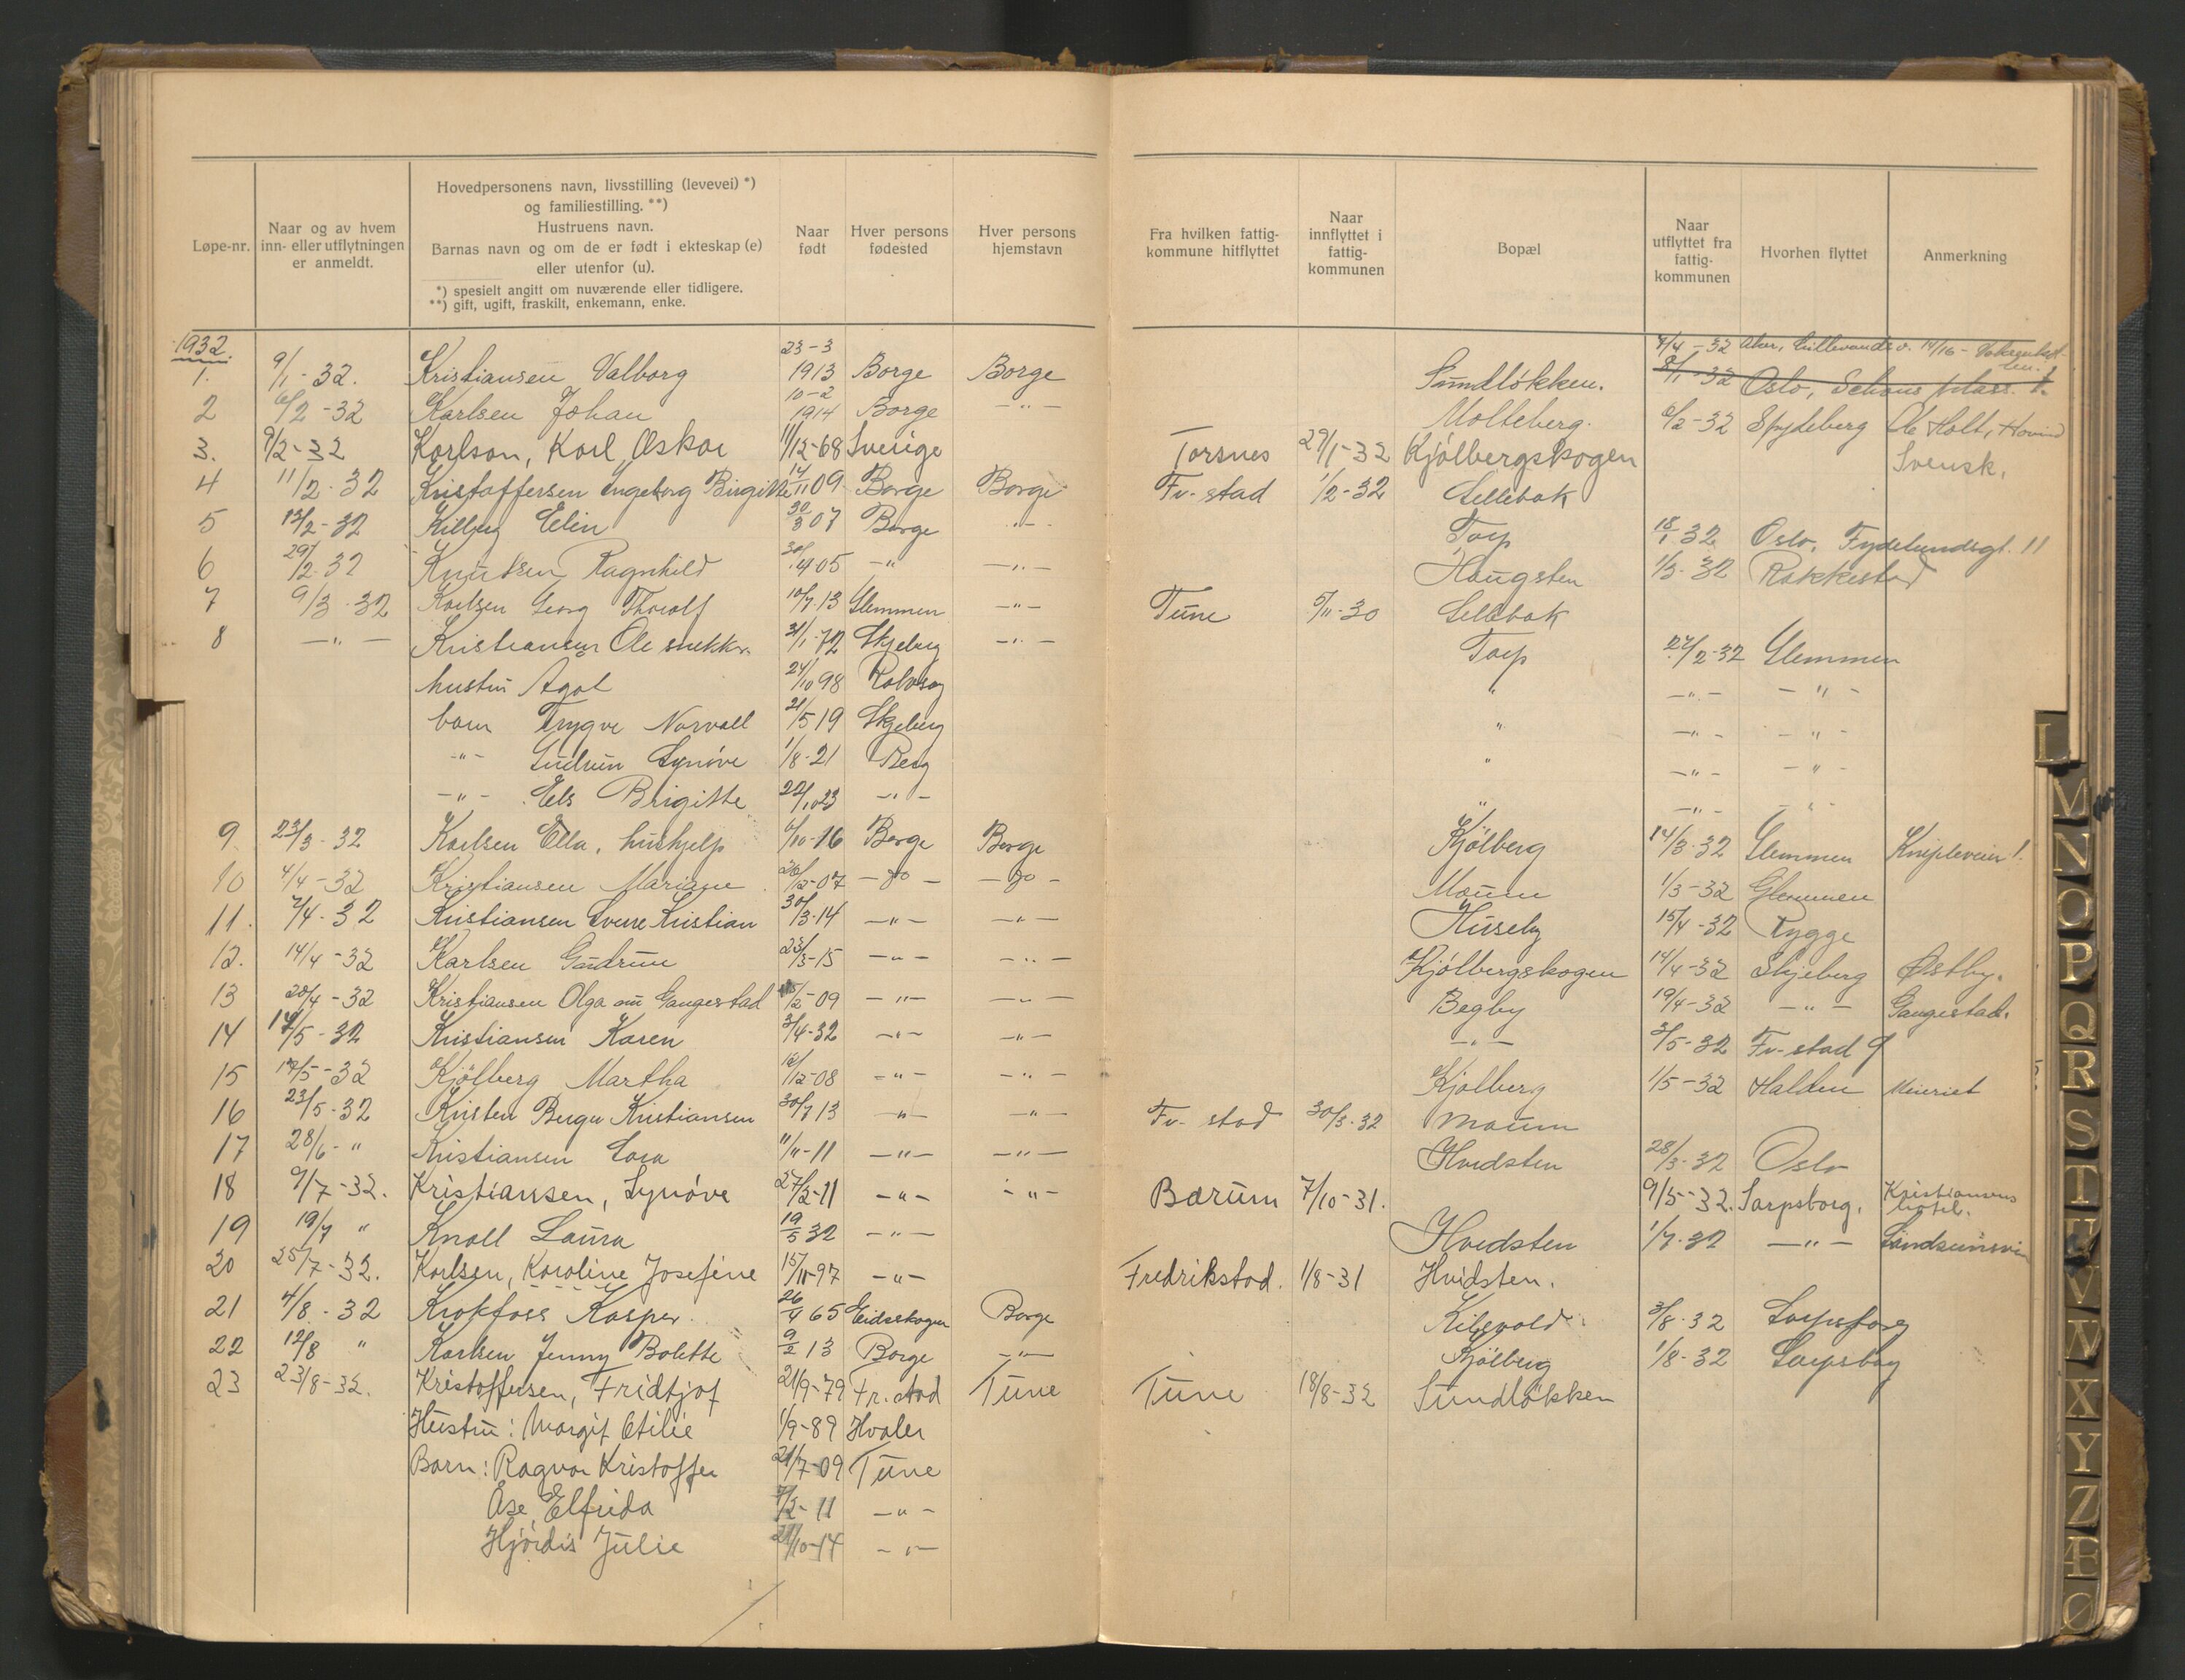 Løpe-nr.
Naar og av hvem
inn- eller utflytningen
er anmeldt.
Hovedpersonens navn, livsstilling (levevei) *)
og familiestilling. **)
Hustruens navn.
Barnas navn og om de er født i ekteskap (e)
eller utenfor (u).
*) spesielt angitt om nuværende eller tidligere.
**) gift, ugift, fraskilt, enkemann, enke.
Naar
født
Hver persons
fødested
Hver persons
hjemstavn
Fra hvilken fattig-
kommune hitflyttet
Naar
innflyttet i
fattig-
kommunen
Bopæl
Naar
utflyttet fra
fattig-
kommunen
Hvorhen flyttet
Anmerkning
1932.
1. 9/1-32. Kristiansen Valborg 23-3 1913 Borge Borge Sundløkken. 8/1-32 Oslo, Schous plass
2 6/2-32 Karlsen Johan 10-2 1914 Borge -"- Molteberg. 6/2-32 Spydeberg Ole Holt, Hovind
3. 9/2-32 Karlson, Karl Oskar 11/12-68 Sverige Torsnes 29/1-32 Kjølbergskogen Svensk.
4 11/2-32 Kristoffersen Ingeborg Birgitte 14/11 09 Borge Borge Fr-stad 1/2-32 Sellebak
5 12/2-32 Elin 30/3 07 Borge -"- Torp 18/1 32 Oslo.
6 29/2-32 Knutsen Ragnhild 30/4 05 -"- -"- Haugsten 1/3-32 Rakkestad
7 9/3-32 Karlsen Georg Thoralf 10/7-13 Glemmen -"- Tune 5/11-30 Sellebak
8 -"- Kristiansen Ole snekker. 31/1-72 Skjeberg -"- Torp 27/2-32 Glemmen
hustru Agot 24/10 98 Rolvsøy " -"- -"-
barn Trygve Norvall 21/5 19 Skjeberg " -"- -"-
-"- Gudrun Synøve 1/8-21 Berg " -"- -"-
-"- Els Brigitte 22/10 23 -"- " -"- -"-
9 23/3-32 Karlsen Ella, hushjelp 6/10-16 Borge Borge Kjølberg 14/3-32 Glemmen Knipleveien 1.
10 4/4-32 Kristiansen Mariane 26/12-07 -do- -do- Moum 1/3-32 Glemmen
11. 7/4-32 Kristiansen Sverre Kristian 30/3-14 -"- -"- Huseby 15/4-32 Rygge
12. 14/4-32 Karlsen Gudrun 23/3-15 -"- -"- Kjølbergskogen 14/4-32 Skjeberg Østby.
13 20/4-32 Kristiansen Olga Gangestad /2-09 -"- -"- Begby 19/4-32 -"- Gangestad.
14 14/5-32 Kristiansen Karen 3/4-32 -"- -"- -"- 3/5-32 Fr-stad
15 /5-32 Kjølberg Martha 12/12-08 -"- -"- Kjølberg 1/5-32 Halden Meieriet
16 23/5-32 Kristen Kristiansen 30/7 13 -"- -"- Fr-stad 30/3-32 Moum
17 28/6-" Kristiansen Lara 11/11-11 -"- -"- Hvidsten 28/3-32 Oslo
18 9/7-32. Kristiansen, Synøve 27/2-11 -"- -"- Bærum 7/10-31. 9/5-32. Sarpsborg. Kristiansens hotel.
19 19/7 " Knoll Laura 19/5 32 -"- Hvidsten 1/7-32 -"-
20 25/7-32. Karlsen, Karoline Josefine 15/11-97 -"- Fredrikstad. 1/8-31 Hvidsten.
21 4/8-32 Krokfoss Kasper. 26/4 65 Eidsskogen Borge 3/8-32 Sarpsborg
22 12/8 " Karlsen Jenny Bolette 9/2 13 Borge -"- Kjølberg 1/8-32 Sarpsborg
23 23/8-32. Kristoffersen, Fridtjof 21/9-79 Fr.stad Tune Tune 18/8-32 Sundløkken
Hustru: Margit Otilie 1/9-89 Hvaler
Barn: Ragnar Kristoffer 21/7-09 Tune
Åse Elfrida 7/2-11 -"-
Hjørdis Julie 21/10-14 -"-
L
M
N
O
P
Q
R
S
T
U
V
W
X
Y
Z
Æ
Ø